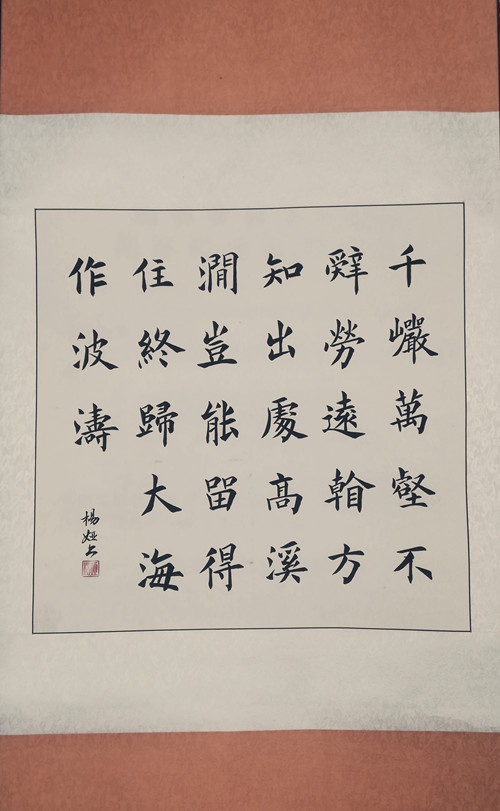 千巗萬壑不
辤勞遠翰方
知出處高溪
澗豈能留得
住終歸大海
作波濤
楊婭